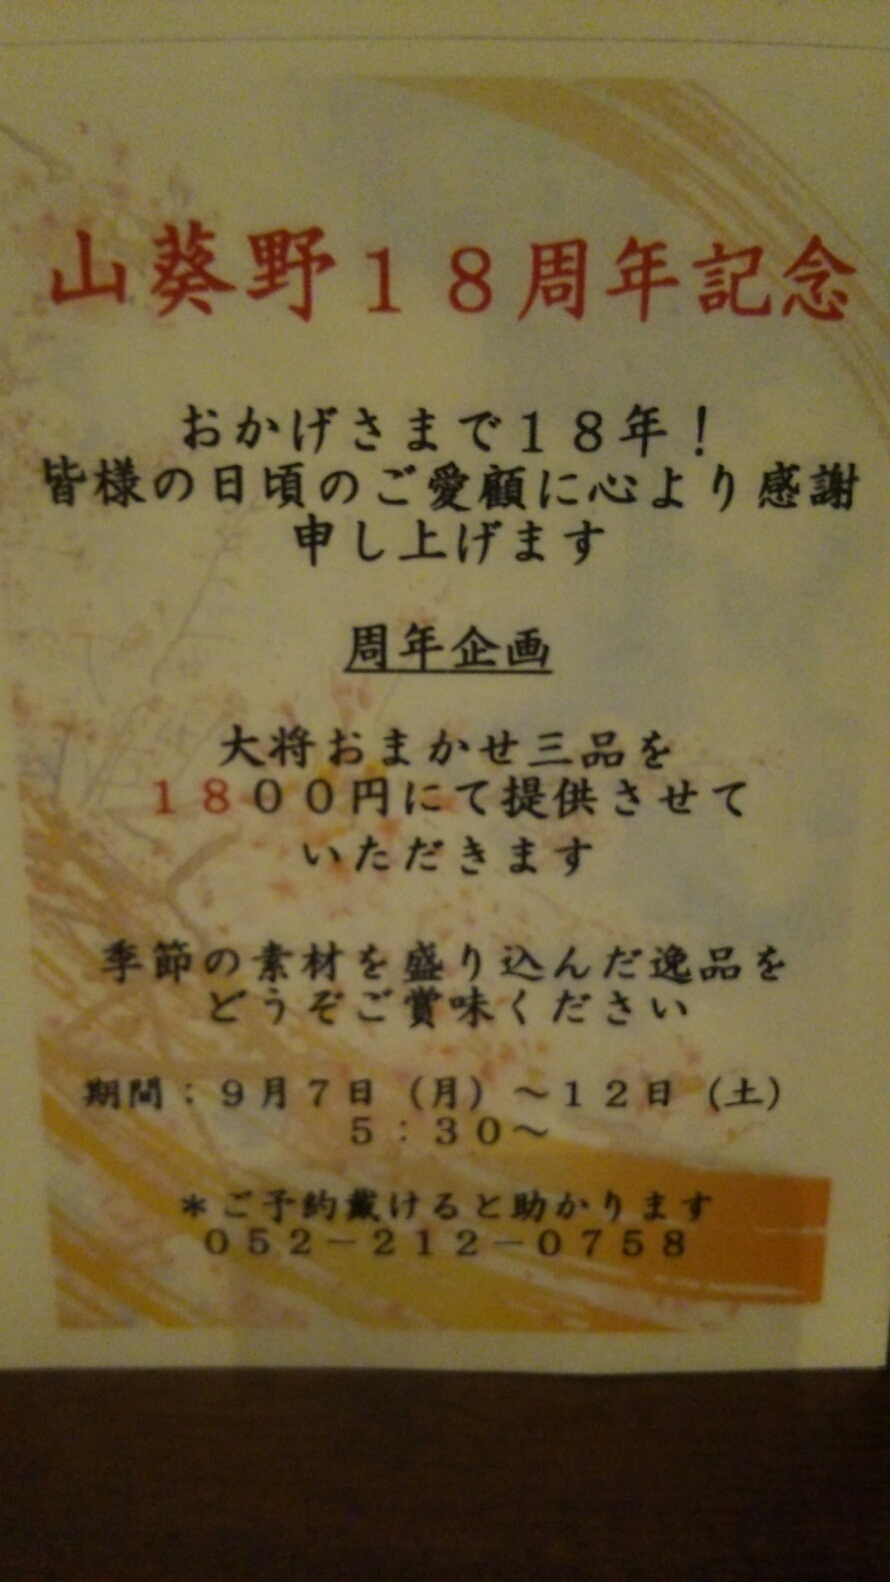 山葵野１８周年記念
おかげさまで１８年！
皆様の日頃のご愛顧に心より感謝
申し上げます
周年企画
大将おまかせ三品を
１８００円にて提供させて
いただきます
季節の素材を盛り込んだ逸品を
どうぞご賞味ください
期間：９月７日（月）～１２日（土）
５：３０～
＊ご予約戴けると助かります
０５２－２１２－０７５８